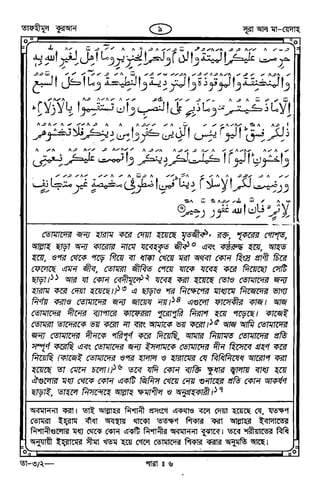 তাফহীমুল কুরআন
৯
সূরা আল মা-য়েদাহ
حُرِّمَتْ عَلَيْكُمُ الْمَيْتَةُ وَالدَّمُ وَلَحْمُ الْخِنْزِيْرِ وَمَآ اُهِلَّ لِغَيْرِ اللّٰهِ بِهٖ
وَالْمُنْخَنِقَةُ وَالْمَوْقُوْذَةُ وَالْمُتَرَدِّيَةُ وَالنَّطِيْحَةُ وَمَآ اَكَلَ السَّبُعُ
اِلَّا مَا ذَكَّيْتُمْ وَمَا ذُبِحَ عَلَى النُّصُبِ وَاَنْ تَسْتَقْسِمُوْا بِالْاَزْلَامِ
ذٰلِكُمْ فِسْقٌ اَلْيَوْمَ يَئِسَ الَّذِيْنَ كَفَرُوْا مِنْ دِيْنِكُمْ فَلَا تَخْشَوْهُمْ
وَاخْشَوْنِ اَلْيَوْمَ اَكْمَلْتُ لَكُمْ دِيْنَكُمْ وَاَتْمَمْتُ عَلَيْكُمْ نِعْمَتِيْ
وَرَضِيْتُ لَكُمُ الْاِسْلَامَ دِيْنًا فَمَنِ اضْطُرَّ فِيْ مَخْمَصَةٍ غَيْرَ مُتَجَانِفٍ
لِّاِثْمٍ فَاِنَّ اللّٰهَ غَفُوْرٌ رَّحِيْمٌ
তোমাদের জন্য হারাম করে দেয়া হয়েছে মৃতজীব৯, রক্ত, শূকরের গোশ্‌ত,
আল্লাহ ছাড়া অন্য কারোর নামে যবেহকৃত জীব১০ এবং কণ্ঠরুদ্ধ হয়ে, আহত
হয়ে, ওপর থেকে পড়ে গিয়ে বা ধাক্কা খেয়ে মরা অথবা কোন হিংস্র প্রাণী চিরে
ফেলেছে এমন জীব, তোমরা জীবিত পেয়ে যাকে যবেহ করে দিয়েছো সেটি
ছাড়া।১১ আর যা কোন বেদীমূলে১২ যবেহ করা হয়েছে (তাও তোমাদের জন্য
হারাম করে দেয়া হয়েছে।)১৩ এ ছাড়াও শর নিক্ষেপের মাধ্যমে নিজেদের ভাগ্য
নির্ণয় করাও তোমাদের জন্য জায়েয নয়।১৪ এগুলো ফাসেকীর কাজ। আজ
তোমাদের দীনের ব্যাপারে কাফেররা পুরোপুরি নিরাশ হয়ে পড়েছে। কাজেই
তোমরা তাদেরকে ভয় করো না বরং আমাকে ভয় করো।১৫ আজ আমি তোমাদের
জন্য তোমাদের দীনকে পরিপূর্ণ করে দিয়েছি, আমার নিয়ামত তোমাদের প্রতি
সম্পূর্ণ করেছি এবং তোমাদের জন্য ইসলামকে তোমাদের দীন হিসেবে গ্রহণ করে
নিয়েছি (কাজেই তোমাদের ওপর হালাল ও হারামের যে বিধিনিষেধ আরোপ করা
হয়েছে তা মেনে চলো।)১৬ তবে যদি কোন ব্যক্তি ক্ষুধার জ্বালায় বাধ্য হয়ে
ঐগুলোর মধ্য থেকে কোন একটি জিনিস খেয়ে নেয় গুনাহের প্রতি কোন আকর্ষণ
ছাড়াই, তাহলে নিসন্দেহে আল্লাহ ক্ষমাশীল ও অনুগ্রহকারী।১৭
অবমাননা করা। তাই আল্লাহর নিশানী প্রসংগে একথাও বলে দেয়া হয়েছে যে, যতক্ষণ
তোমরা ইহ্‌রাম বাঁধা অবস্থায় থাকো ততক্ষণ শিকার করা আল্লাহর ইবাদাতের
নিশানীগুলোর মধ্য থেকে কোন একটি নিশানীর অবমাননা বুঝাবে। তবে শরীয়াতের বিধি
অনুযায়ী ইহ্‌রামের সীমা খতম হয়ে গেলে তোমাদের শিকার করার অনুমতি আছে।
তা-৩/২—
পারা : ৬